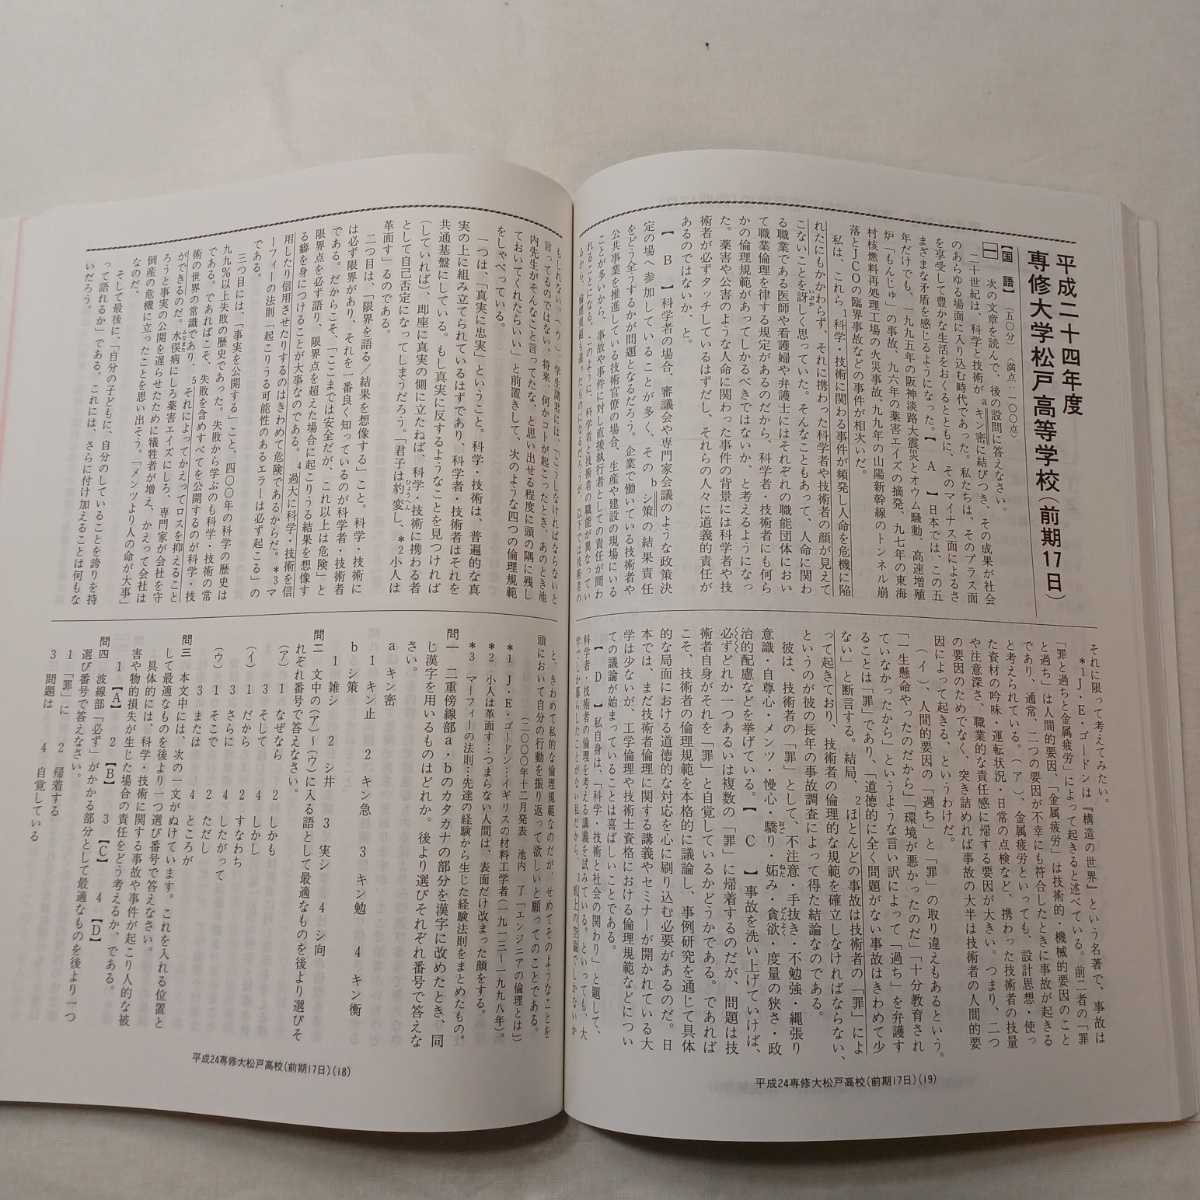 平成二十四年度
専修大学松戸高等学校(前期17日)
【国語】(五〇分)〈満点:一〇〇点〉
一 次の文章を読んで、後の設問に答えなさい。
二十世紀は、科学と技術がaキン密に結びつき、その成果が社会
のあらゆる場面に入り込む時代であった。私たちは、そのプラス面
を享受して豊かな生活をおくるとともに、そのマイナス面によるさ
まざまな矛盾を感じるようになった。【A】日本では、この五
年だけでも、一九九五年の阪神淡路大震災とオウム騒動、高速増殖
炉「もんじゅ」の事故、九六年の薬害エイズの摘発、九七年の東海
村核燃料再処理工場の火災事故、九九年の山陽新幹線のトンネル崩
落とJCOの臨界事故などの事件が相次いだ。
私は、これら1科学・技術に関わる事件が頻発し人命を危機に陥
れたにもかかわらず、それに携わった科学者や技術者の顔が見えて
こないことを訝しく思っていた。そんなこともあって、人命に関わ
る職業である医師や看護婦や弁護士にはそれぞれの職能団体におい
て職業倫理を律する規定があるのだから、科学者・技術者にも何ら
かの倫理規範があってしかるべきではないか、と考えるようになっ
た。薬害や公害のような人命に関わった事件の背景には科学者や技
術者が必ずタッチしているはずだし、それらの人々に道義的責任が
あるのではないか、と。
【B】科学者の場合、審議会や専門家会議のような政策決
定の場へ参加していることが多く、そのbシ策の結果責任
をどう全うするかが問題となるだろう。企業で働いている技術者や
公共事業を推進している技術官僚の場合、生産や建設の現場にいる
ことが多いから、事故や事件に対し直接執行者としての責任が問わ
それに限って考えてみたい。
*1J・E・ゴードンは『構造の世界』という名著で、事故は
「罪と過ちと金属疲労」によって起きると述べている。前二者の「罪
と過ち」は人間的要因、「金属疲労」は技術的・機械的要因のこと
であり、通常、二つの要因が不幸にも符合したときに事故が起きる
と考えられている。(ア)、金属疲労といっても、設計思想・使っ
た資材の吟味・運転状況・日常の点検など、携わった技術者の技量
や注意深さ、職業的な責任感に帰する要因が大きい。つまり、二つ
の要因のためでなく、突き詰めれば事故の大半は技術者の人間的要
因によって起きる、というわけだ。
(イ)、人間的要因の「過ち」と「罪」の取り違えもあるという。
「一生懸命やったのだから」「環境が悪かったのだ」「十分教育され
ていなかったから」というような言い訳によって「過ち」を弁護す
ることは「罪」であり、「道徳的に全く問題がない事故はきわめて少
ない」と断言する。結局、2ほとんどの事故は技術者の「罪」によ
って起きており、技術者の倫理的な規範を確立しなければならない、
というのが彼の長年の事故調査によって得た結論なのである。
彼は、技術者の「罪」として、不注意・手抜き・不勉強・縄張り
意識・自尊心・メンツ・慢心・驕り・妬み・貪欲・度量の狭さ・政
治的配慮などを挙げている。【C】事故を洗い上げていけば、
必ずどれか一つあるいは複数の「罪」に帰着するのだが、問題は技
術者自身がそれを「罪」と自覚しているかどうかである。であれば
こそ、技術者の倫理規範を本格的に議論し、事例研究を通じて具体
的な局面における道徳的な対応を心に刷り込む必要があるのだ。日
本では、まだ技術者倫理に関する講義やセミナーが開かれている大
学は少ないが、工学倫理や技術士資格における倫理規範などについ
ての議論が始まっていることは喜ばしいことである。
【D】私自身は、「科学・技術と社会の関わり」と題して、
平成24専修大松戸高校(前期17日)(19)
言ってるのではない。将来、何かコトが起こったとき、あのとき池
内先生がそんなこと言ってたな、と思い出せる程度に頭の隅に残し
ておいてくれたらいい」と前置きして、次のような四つの倫理規範
をしゃべっている。
一つは、「真実に忠実」ということ。科学・技術は、普遍的な真
実の上に組み立てられているはずであり、科学者・技術者はそれを
共通基盤にしている。もし真実に反するようなことを見つければ
(していれば)、即座に真実の側に立たねば、科学・技術に携わる者
として自己否定になってしまうだろう。「君子は豹変し、*2小人は
革面す」るのである。
二つ目は、「限界を語る/結果を想像する」こと。科学・技術に
は必ず限界があり、それを一番良く知っているのが科学者・技術者
である。だからこそ、「ここまでは安全だが、これ以上は危険」と
限界点を必ず語り、限界点を超えた場合に起こりうる結果を想像す
る癖を身につけることが大事なのである。4過大に科学・技術を信
用したり信用させたりするのはきわめて危険であるからだ。*3マ
ーフィーの法則「起こりうる可能性のあるエラーは必ず起こる」の
である。
三つ目には、「事実を公開する」こと。四〇〇年の科学の歴史は
九九%以上失敗の歴史であった。失敗から学ぶのも科学・技術の常
である。であればこそ、失敗を含めすべてを公開するのが科学・技
術の世界の常識であり、5それによってかえってロスを抑えること
ができるのだ。水俣病にしろ薬害エイズにしろ、専門家が会社を守
ろうと事実の公開を遅らせたために犠牲者が増え、かえって会社は
倒産の危機に立ったことを思い出そう。「メンツより人の命が大事」
なのだ。
そして最後に、「自分の子どもに、自分のしていることを誇りを持
って語れるか」である。これには、さらに付け加えることは何もな
いだろう。
と、きわめて私的な倫理規範なのだが、せめてそのようなことを
頭において自分の行動を振り返って欲しいと願ってのことである。
(二〇〇〇年十二月発表 池内 了「エンジニアの倫理とは」)
*1 J・E・ゴードン…イギリスの材料工学者(一九一三―一九九八年)。
*2 小人は革面す…つまらない人間は、表面だけ改まった顔をする。
*3 マーフィーの法則…先達の経験から生じた経験法則をまとめたもの。
問一 二重傍線部a・bのカタカナの部分を漢字に改めたとき、同
じ漢字を用いるものはどれか。後より選びそれぞれ番号で答えな
さい。
a キン密
1 キン止 2 キン急 3 キン勉 4 キン衡
b シ策
1 雑シ 2 シ井 3 実シ 4 シ向
問二 文中の(ア)~(ウ)に入る語として最適なものを後より選びそ
れぞれ番号で答えなさい。
(ア) 1 なぜなら 2 しかも
3 そして 4 しかし
(イ) 1 だから 2 すなわち
3 さらに 4 したがって
(ウ) 1 そこで 2 ただし
3 または 4 ところが
問三 本文中には、次の一文がぬけています。これを入れる位置と
して最適なものを後より一つ選び番号で答えなさい。
具体的には、科学・技術に関する事故や事件が起こり人的な被
害や物的損失が生じた場合の責任をどう考えるか、である。
1【A】 2【B】 3【C】 4【D】
問四 波線部「必ず」がかかる部分として最適なものを後より一つ
選び番号で答えなさい。
1 「罪」に 2 帰着する
3 問題は 4 自覚している
平成24専修大松戸高校(前期17日)(18)